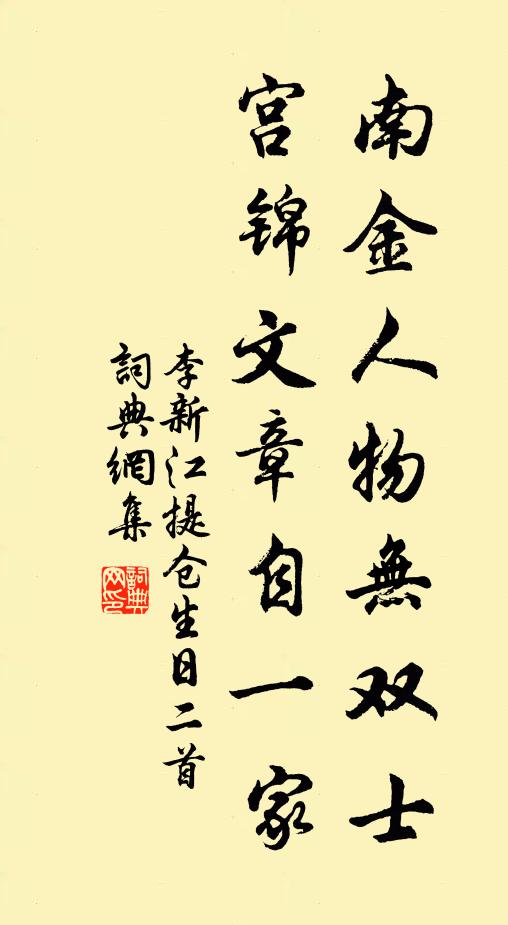 南金人物無双士
宫锦文章自一家
李新江提仓生日二首
詞典網集
詞典网印